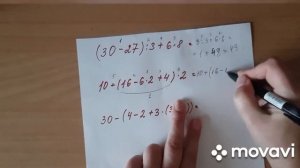 (30-27):3+6·8=3:3+6·8=
=1+49=49
10+(16-6·2+4):2=10+(16-1
30-(4-2+3·(3
movavi